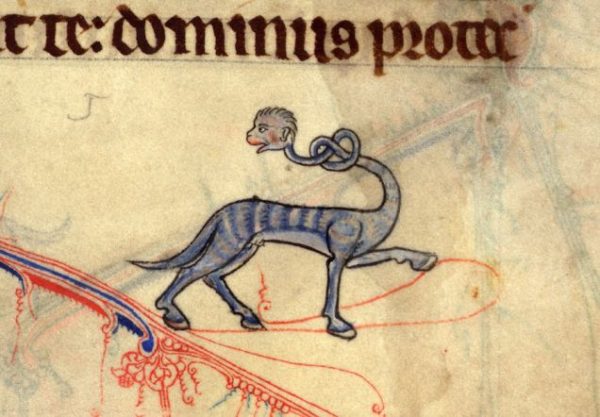 it te: dominus protec